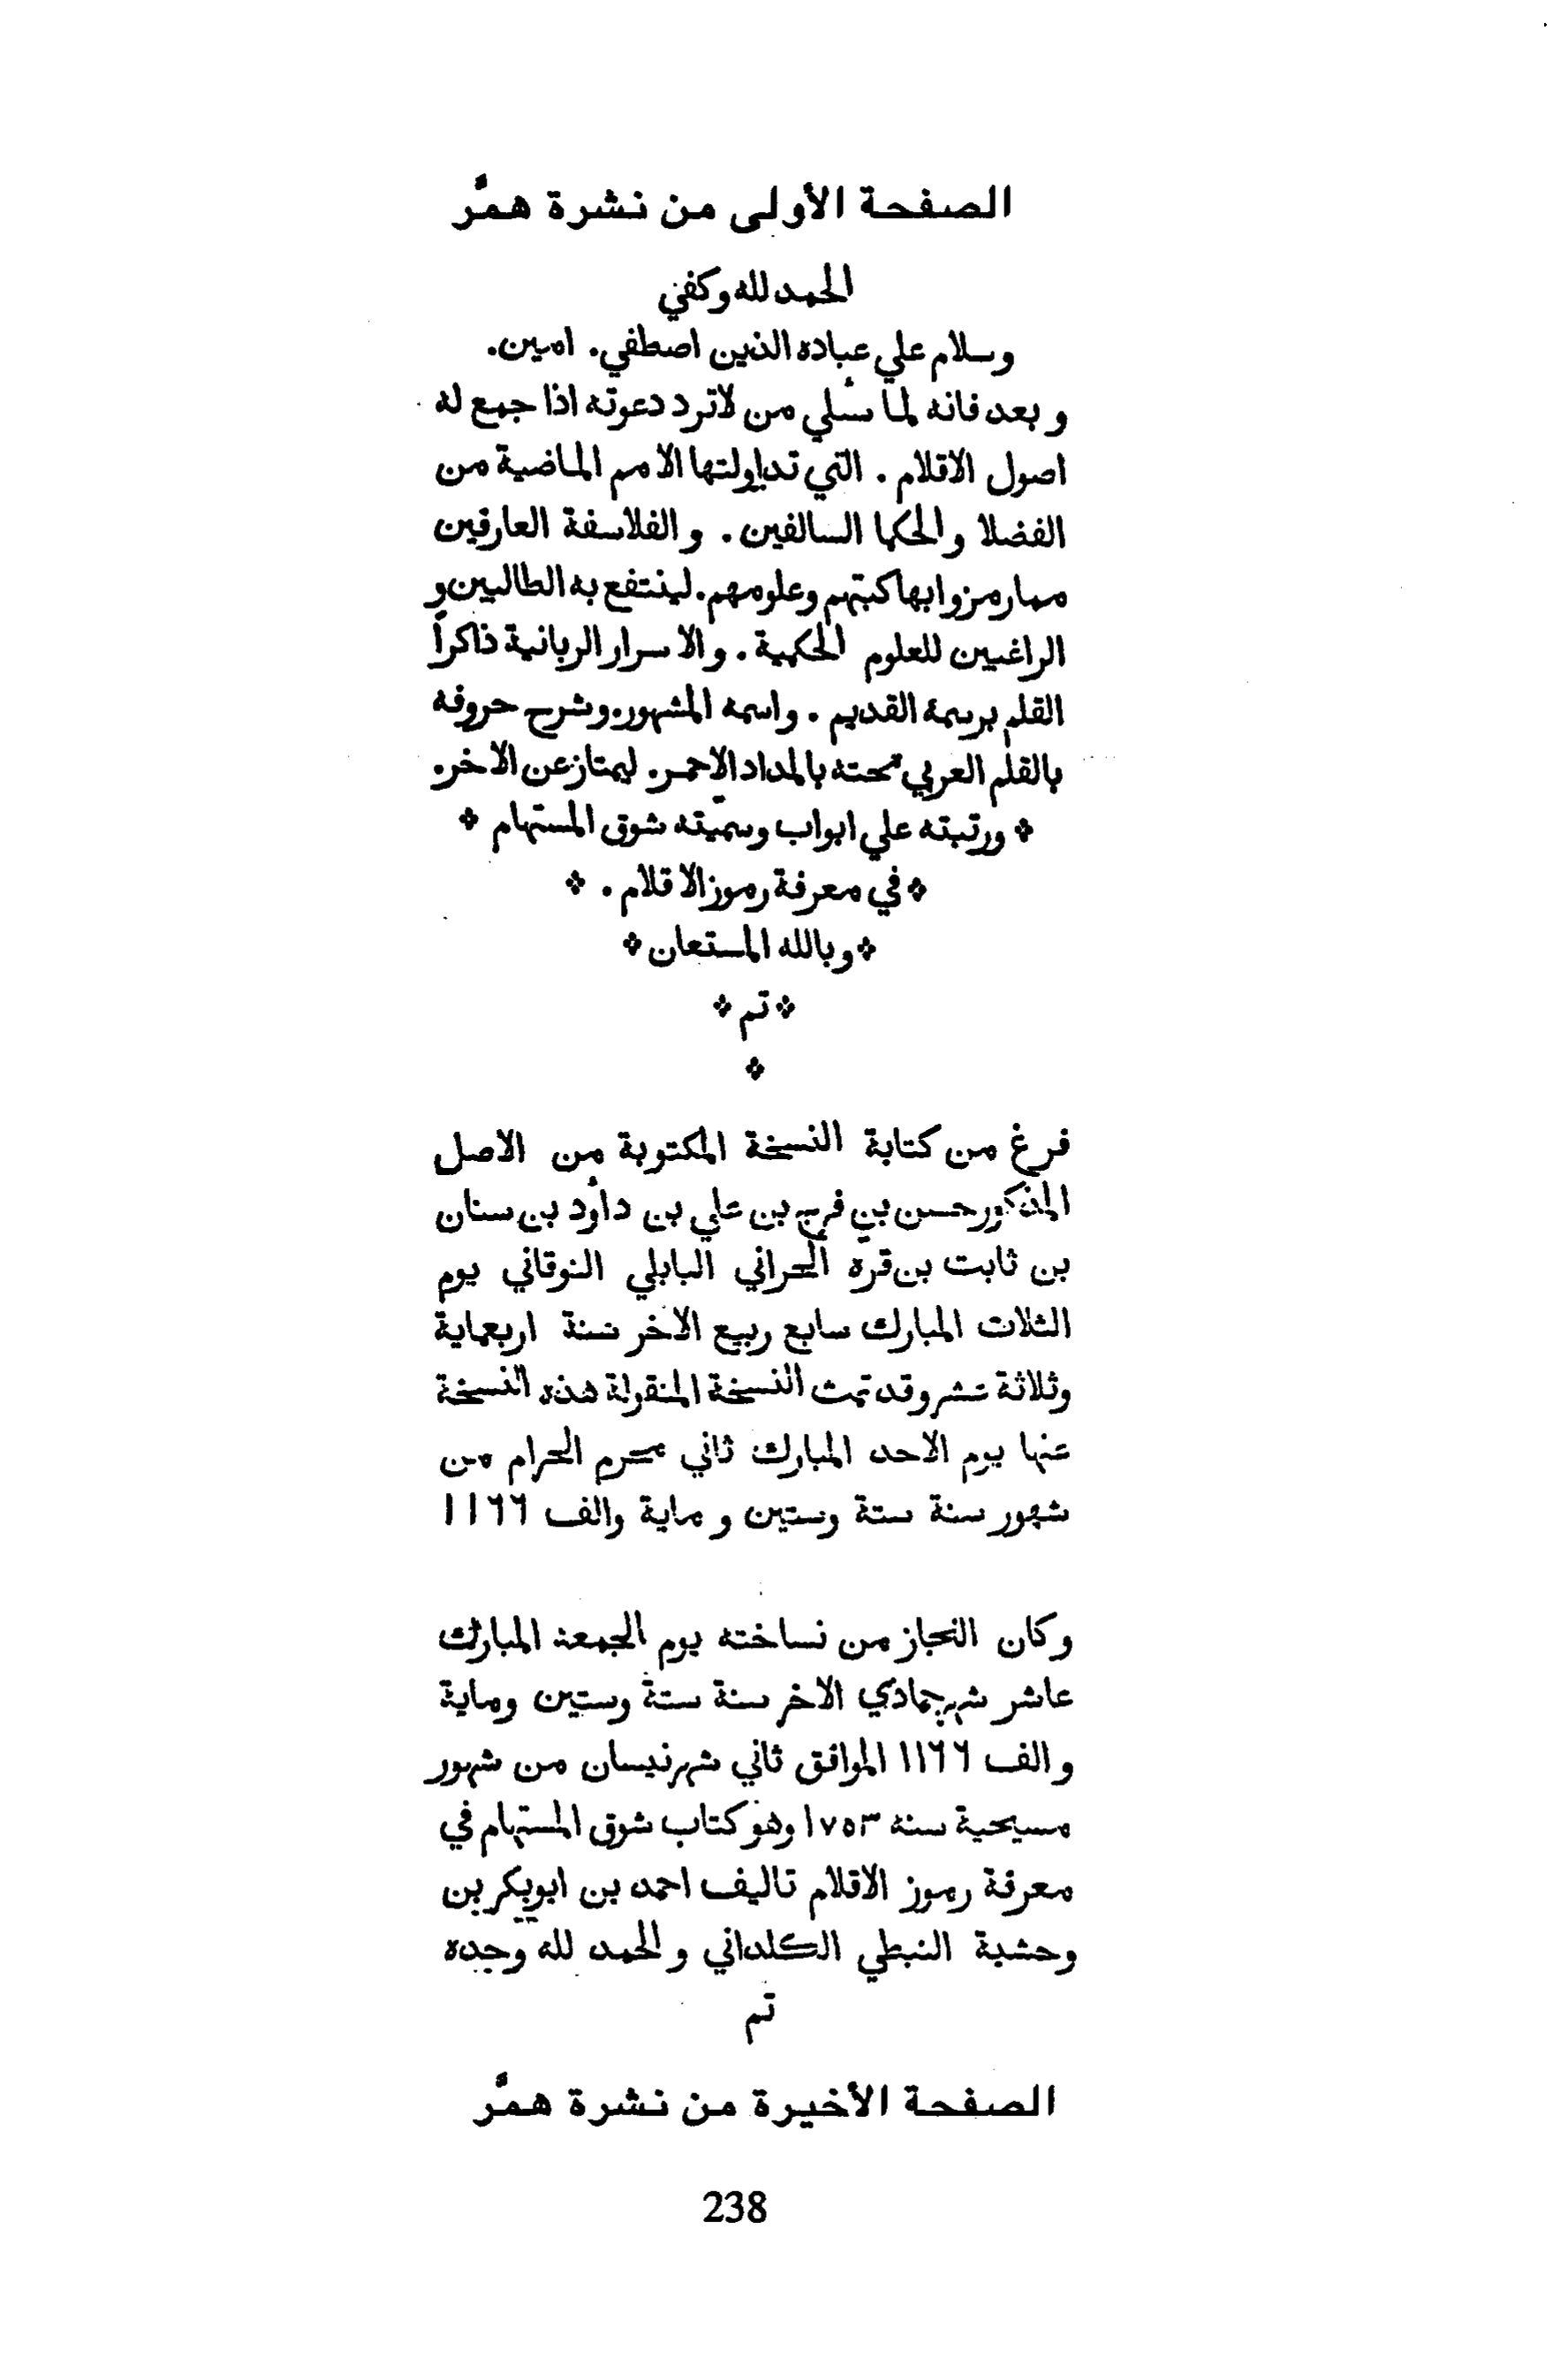 الصفحة الأولى من نشرة همَّر
الحمد لله وكفي
وسلام علي عباده الذين اصطفي. امين.
و بعد فانه لما سُلي من لا ترد دعوته اذا جمع له
اصول الاقلام . التي تداولتها الامم الماضية من
الفضلا والحكما السالفين . والفلاسفة العارفين
مما رمزوا بها كتبهم وعلومهم. لينتفع به الطالبين و
الراغبين للعلوم الحكمية . والاسرار الربانية ذاكراً
القلم برسمة القديم . واسمه المشهور. وشرح حروفه
بالقلم العربي تحته بالمداد الاحمر. ليمتاز عن الاخر.
❖ ورتبته علي ابواب وسمّيته شوق المستهام ❖
❖ في معرفة رموز الاقلام . ❖
❖ وبالله المستعان ❖
❖ تم ❖
❖
فرغ من كتابة النسخة المكتوبة من الاصل
المذكور حسن بن فرج بن علي بن داؤد بن سنان
بن ثابت بن قرة الحراني البابلي النوقاني يوم
الثلاث المبارك سابع ربيع الاخر سنة اربعماية
وثلاثة عشر وقد تمت النسخة المنقولة هذه النسخة
عنها يوم الاحد المبارك ثاني محرم الحرام من
شهور سنة ستة وستين و ماية والف ١١٦٦
وكان النجاز من نساخته يوم الجمعة المبارك
عاشر شهر جمادي الاخر سنة ستة وستين وماية
والف ١١٦٦ الموافق ثاني شهر نيسان من شهور
مسيحية سنه ١٧٥٣ وهو كتاب شوق المستهام في
معرفة رموز الاقلام تاليف احمد بن ابوبكر بن
وحشية النبطي الكلداني والحمد لله وحده
تم
الصفحة الأخيرة من نشرة همَّر
238